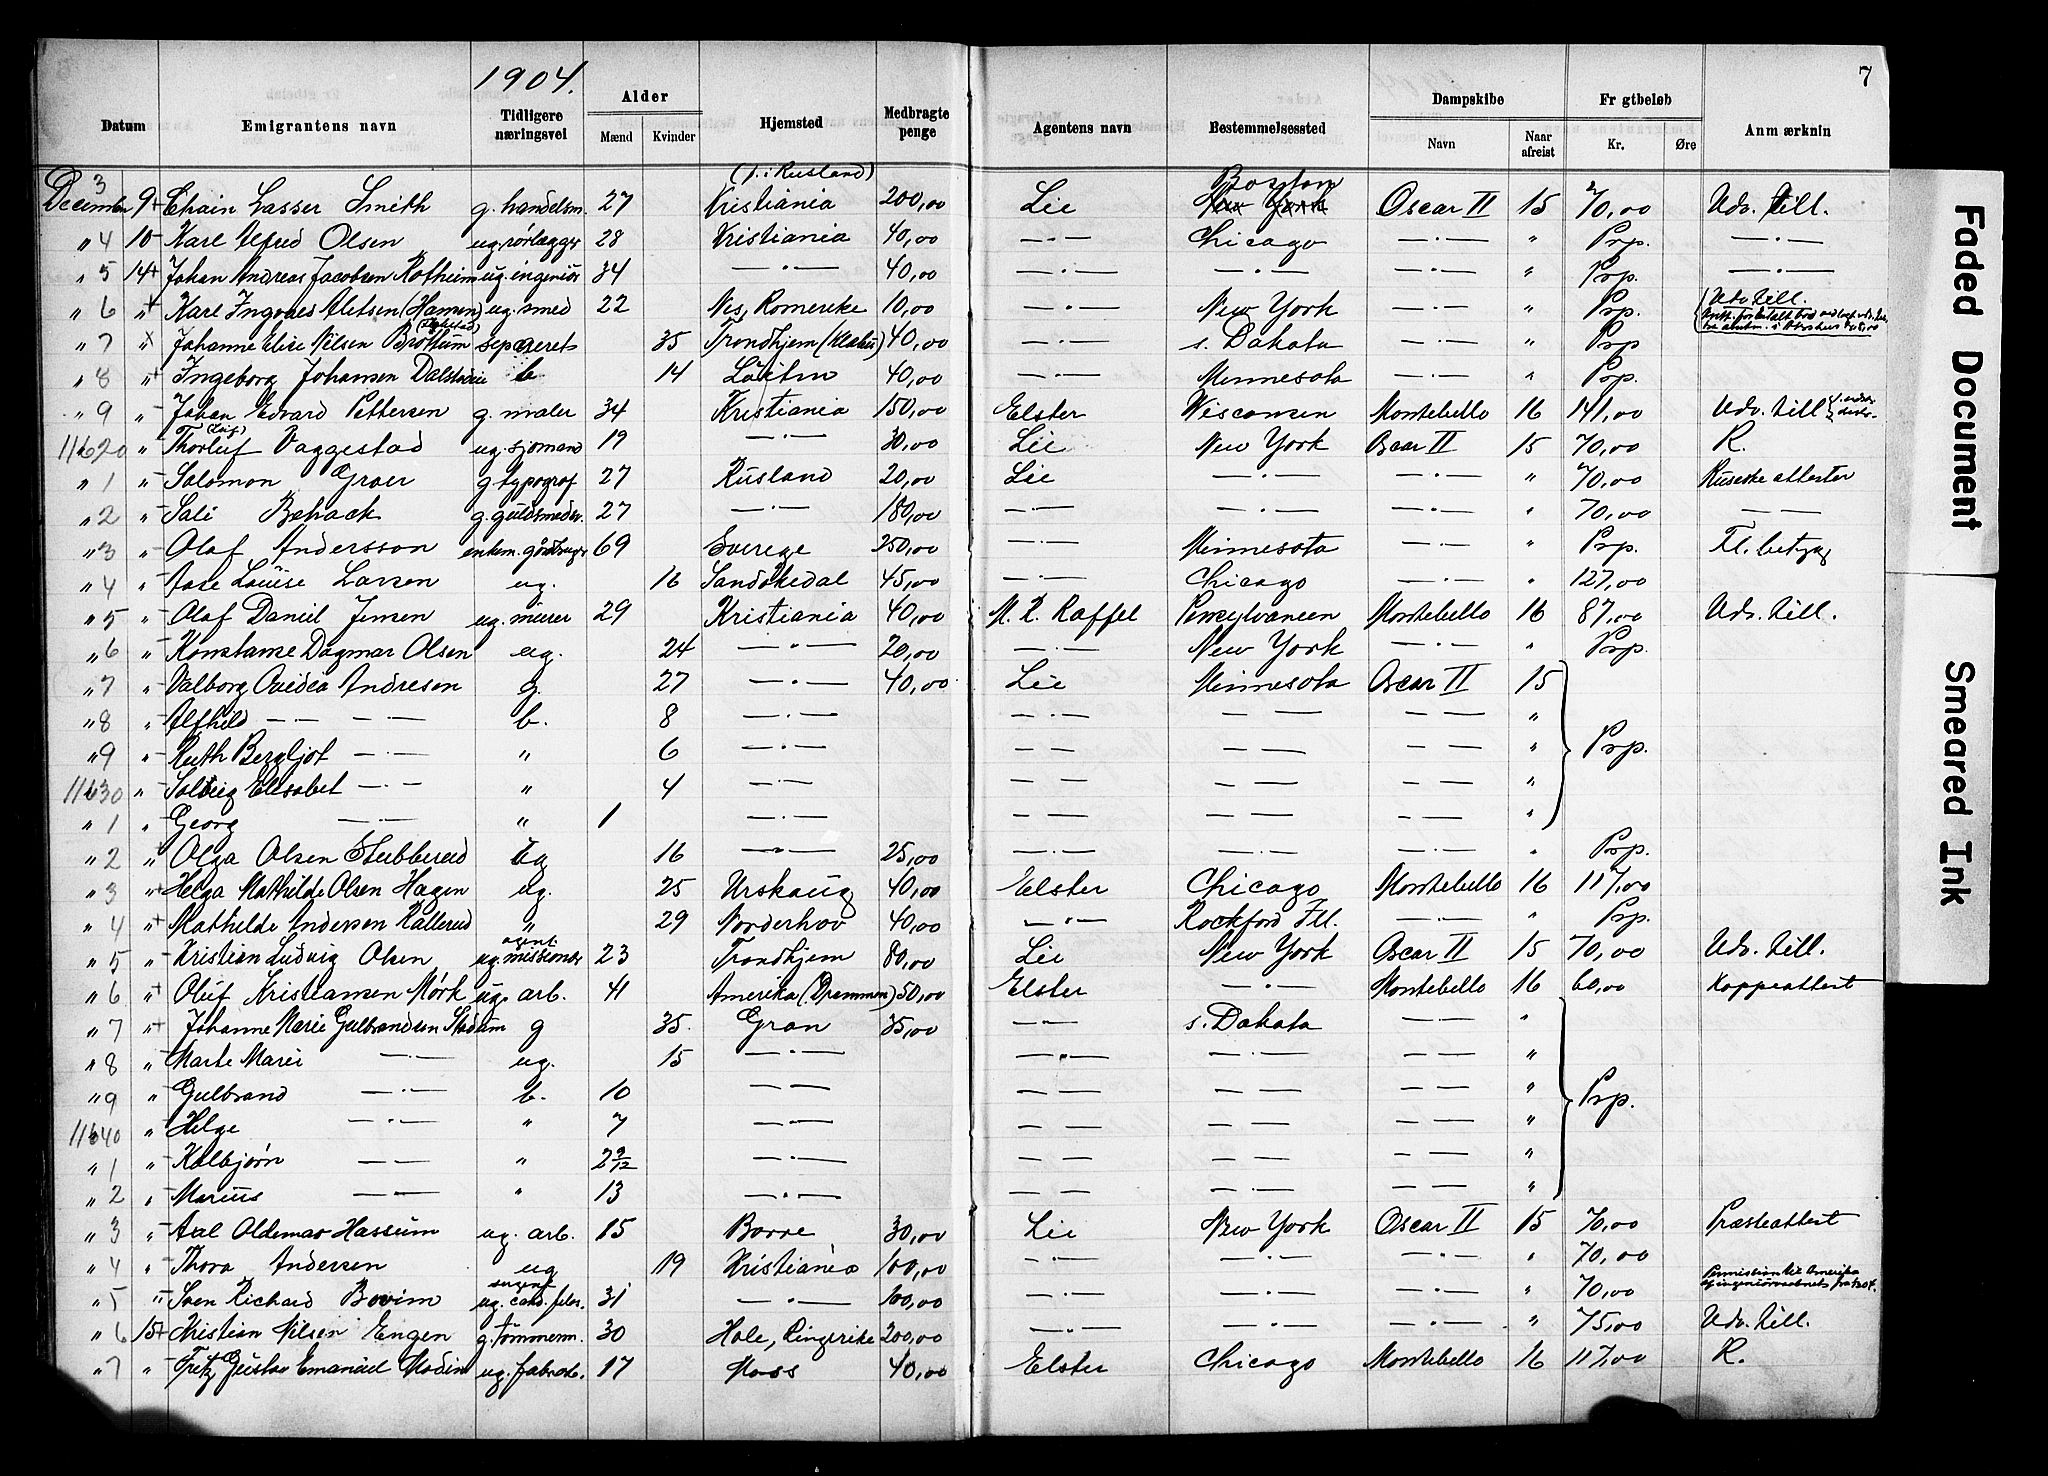 7
1904.
Datum | Emigrantens navn | Tidligere næringsvei | Alder Mænd | Kvinder | Hjemsted | Medbragte penge | Agentens navn | Bestemmelsessted | Dampskibe Navn | Naar afreist | Fr gtbeløb Kr. | Øre | Anm ærknin
December 3 | 9 + | Chain Lasser Smith | g. handelsm. | 27 | | (f. i Rusland) Kristiania | 200,00 | Lie | Boston New York | Oscar II | 15 | 70,00 | Udv. till.
" 4 | 10 - | Karl Alfred Olsen | ug. rørlægger | 28 | | Kristiania | 40,00 | — " — | Chicago | — " — | " | Prp. | — " —
" 5 | 14 + | Johan Andreas Jacobsen Rotheim | ug. ingeniør | 34 | | — " — | 40,00 | — " — | — " — | — " — | " | Prp. | — " —
" 6 | " + | Karl Ingvald Aletsen (Hansen) | ug. smed | 22 | | Nes, Romerike | 10,00 | — " — | New York | — " — | " | Prp. | Udv. till.
" 7 | " x | Johanne Elise Nilsen Brøttum | separeret | | 35 | Trondhjem (Klæbu) | 40,00 | — " — | s. Dakota | — " — | " | Prp
" 8 | " + | Ingeborg Johansen Dalstadie | b | | 14 | Løiten | 40,00 | — " — | Minnesota | — " — | " | Prp.
" 9 | " - | Johan Edvard Pettersen | g. maler | 34 | | Kristiania | 150,00 | Elster | Wisconsen | Montebello | 16 | 141,00 | Udv. till
11620 | " | Thorleif (Leif) Vaggestad | ug. sjomand | 19 | | — " — | 30,00 | Lie | New York | Oscar II | 15 | 70,00 | R.
" 1 | " - | Salomon Graer | g. typograf | 27 | | Rusland | 20,00 | Lie | — " — | — " — | " | 70,00 | Russiske attester
" 2 | " - | Sali Behack | g. guldsmeder. | 27 | | — " — | 180,00 | — " — | — " — | — " — | " | 70,00 | — —
" 3 | " - | Olof Andersson | enkem. gårdbruger | 69 | | Sverige | 250,00 | — " — | Minnesota | — " — | " | Prp. | Fl. betyg
" 4 | " - | Aase Louise Larsen | ug. | | 16 | Sandøkedal | 45,00 | — " — | Chicago | — " — | " | 127,00
" 5 | " - | Olaf Daniel Jensen | ug. murer | 29 | | Kristiania | 40,00 | M. R. Raffel | Pensylvaneen | Montebello | 16 | 87,00 | Udv. till.
" 6 | " - | Konstanse Dagmar Olsen | ug. | | 24 | — " — | 20,00 | — " — | New York | — " — | " | Prp.
" 7 | " - | Valborg Ovidia Andresen | g. | | 27 | — " — | 40,00 | Lie | Minnesota | Oscar II | 15
" 8 | " - | Alfhild — " — | b. | | 8 | — " — | | — " — | — — | — — | "
" 9 | " - | Ruth Bergljot — " — | " | | 6 | — " — | | — — | — — | — — | " | Prp.
11630 | " - | Solveig Elisabet — " — | " | | 4 | — " — | | — — | — — | — — | "
" 1 | " | Georg — " — | " | 1 | | — " — | | — — | — — | — — | "
" 2 | " + | Olga Olsen Stubberud | ug | | 16 | — " — | 25,00 | — " — | — " — | — " — | " | Prp.
" 3 | " + | Helga Mathilde Olsen Hagen | ug. | | 25 | Urskaug | 40,00 | Elster | Chicago | Montebello | 16 | 117,00
" 4 | " + | Mathilde Andersen Kallerud | " | | 29 | Norderhov | 40,00 | — " — | Rockford Ill. | — " — | " | Prp.
" 5 | " - | Kristian Ludvig Olsen | agent. ug. missionær | 23 | | Trondhjem | 80,00 | Lie | New York | Oscar II | 15 | 70,00 | Udv. till.
" 6 | " + | Oluf Kristiansen Mørk | ug. arb. | 41 | | Amerika (Drammen) | 50,00 | Elster | — " — | Montebello | 16 | 60,00 | Koppeattest
" 7 | " + | Johanne Marie Gulbrandsen Stadum | g | | 35 | Gran | 35,00 | — " — | s. Dakota | — " — | "
" 8 | " - | Marte Marie — " — | ug. | | 15 | — " — | | — " — | — " — | — — | "
" 9 | " | Gulbrand — " — | b. | 10 | | — — | | — — | — " — | — — | " | Prp.
11640 | " | Helge — " — | " | 7 | | — — | | — — | — " — | — — | "
" 1 | " | Kolbjørn — — | " | 2 9/12 | | — — | | — — | — " — | — — | "
" 2 | " | Marius — — | " | 13 | | — " — | | — — | — " — | — — | "
" 3 | " - | Axel Oldemar Hassum | ug. arb. | 15 | | Borre | 30,00 | Lie | New York | Oscar II | 15 | 70,00 | Præsteattest
" 4 | " - | Thora Andersen | ug | | 19 | Kristiania | 100,00 | — " — | — " — | — " — | " | 70,00
" 5 | " - | Sven Richard Bovim | ug. cand. filos. | 31 | | — " — | 100,00 | — " — | — " — | — " — | " | 70,00 | Permission til Amerika
" 6 | 15 + | Kristian Nilsen Engen | g. tømmerm. | 30 | | Hole, Ringerike | 200,00 | — " — | — " — | — " — | " | 75,00 | Udv. till.
" 7 | " - | Fritz Gustav Emanuel Modin | ug. fabrarb. | 17 | | Moss | 40,00 | Elster | Chicago | Montebello | 16 | 117,00 | R.
Faded Document
Smeared Ink